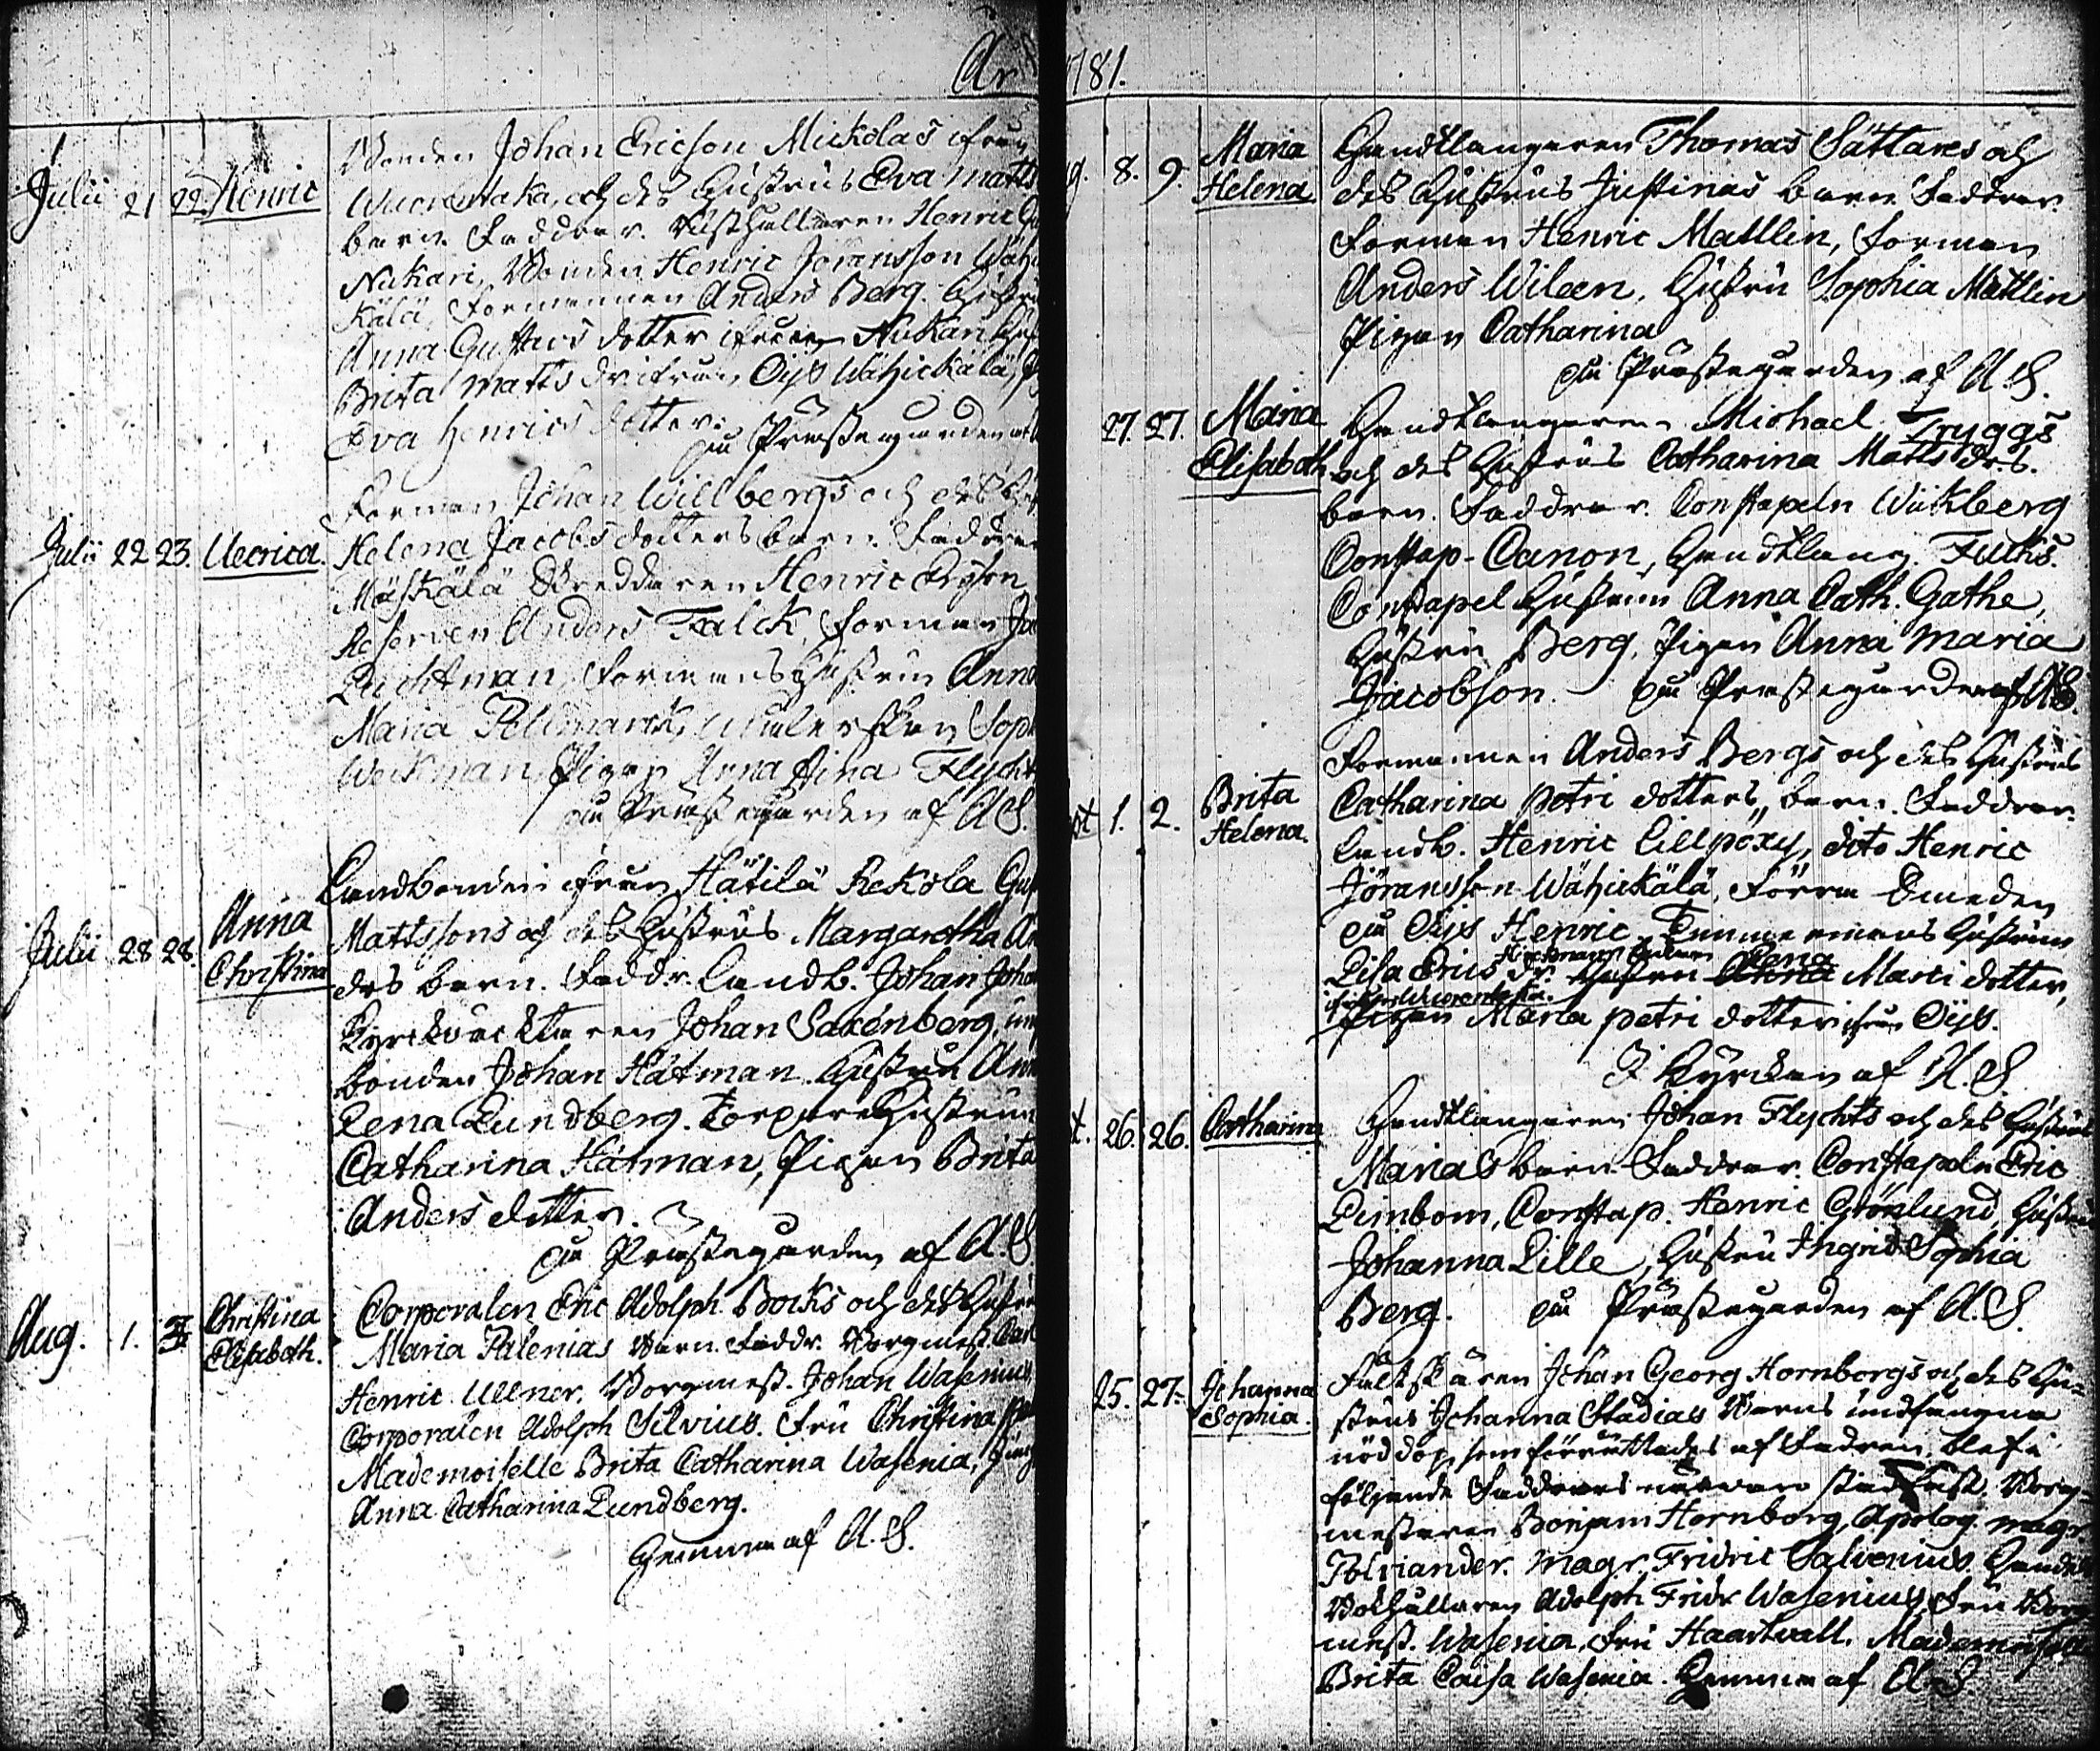 År 1781.
Bonden Johan Ericson Mickolas ifrån
Julii 21 22. Henric
Wuorentaka, och des Hustrus Eva Matts
barn. Faddrar. Rusthållaren Henric
Nukari, Bonden Henric Jöransson Wähi
kälä, Formannen Anders Berg. Hustru
Anna Gustavs dotter ifrån Nukari
Brita Matts dr ifrån Öijs Wähickälä,
Eva Henrics dotter.
på Prästegården
Forman Johan Willbergs och des
Julii 22 23. Ulrica.
Helena Jacobs dotters barn. Faddrar
Mäskälä Skreddaren Henric
Reserven Anders Falck, Forman
Luchtman, Formans Hustrun Anna
Maria Pollman
Weckman, Pigan Anna Stina Flycht
på Prästegården af A S.
Landbonden ifrån Hätilä Rekola
Julii 28 28. Anna Christina
Mattssons och des Hustrus Margaretha
dos barn. Faddr. Landb. Johan
Kyrckväcktaren Johan Saxenberg,
bonden Johan Hätman Hustrun
Lena Lundberg. Torpare Hustrun
Catharina Hätman, Pigan Brita
Anders dotter.
på Prästegården af A. S
Aug. 1. Christina Elisabeth.
Corporalen Eric Adolph Bocks och des
Maria Palenias Barn. Faddr. Borgmest.
Henric Ullner. Borgmest. Johan Wasenius
Corporalen Adolph Silvius. Fru Christina
Mademoiselle Brita Catharina Wasenia,
Anna Catharina Lundberg.
Hemma af A. S.
8. 9. Maria Helena
Handtlangaren Thomas Sättares och
des Hustrus Justinas barn Faddrar.
Forman Henric Mattlin, Forman
Anders Wileen, Hustru Sophia Mattlin
Pigan Catharina
på Prästegården af A S.
27. 27. Maria Elisabeth
Handtlangaren Michael Tryggs
och des Hustrus Catharina Matts drs.
barn. Faddrar. Constapeln Wickberg
Constap-Canon, Handtlang. Fucks.
Constapel Hustrun Anna Cath. Gathe,
Hustru Berg, Pigan Anna Maria
Jacobson. på Prästegården af AS.
Formannen Anders Bergs och des Hustrus
1. 2. Brita Helena.
Catharina Petri dotters, barn. Faddrar.
Landb. Henric Lillpöxy, dito Henric
Jöransson Wähickälä, Förra Smeden
på Öijs Henric
Lisa Erics dr. Lena Marci dotter,
ifrån Wuorentaka.
Pigan Maria Petri dotter ifrån Öijs.
I Kyrckan af A. S
26. 26. Catharina
Handtlangaren Johan Flychts och des
Marias barn. Faddrar. Constapeln Eric
Limbom, Constap. Henric Grönlund,
Johanna Lille, Hustru Ingrid Sophia
Berg. på Prästegården af A. S.
25. 27. Johanna Sophia.
Fältskären Johan Georg Hornborgs och des Hu-
strus Johanna Stadias Barns undfångna
nöddop, som förrättades af Fadren, blef i
följande Faddrars närvaro stadfäst. Borg-
mestaren Benjam Hornborg, Apolog. magr
Polviander. Magr. Fridric Salvenius.
Bokhållaren Adolph Fridr Wasenius, Fru
mest. Wasenia, Fru Haartvall. Mademoiselle
Brita Caisa Wasenia. Hemma af A S.